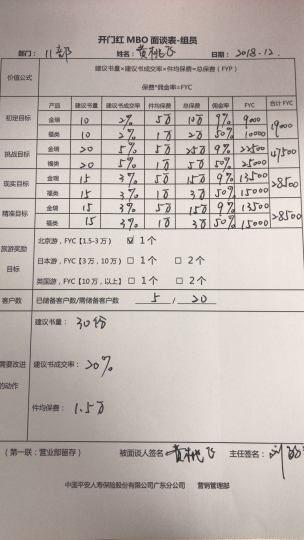 开门红 MBO 面谈表-组员
部门：11部 姓名：黄桃飞 日期：2018.12.
价值公式 建议书量×建议书成交率×件均保费=总保费（FYP）
保费*佣金率=FYC
产品 建议书量 建议书成交率 件均保费 总保费 佣金率 FYC 合计 FYC
初定目标 金瑞 10 2% 5万 10万 9% 9000 19000
福类 10 2% 1万 2万 50% 10000
挑战目标 金瑞 20 5% 5万 25万 9% 22500 47500
福类 20 5% 1万 5万 50% 25000
现实目标 金瑞 15 3% 5万 15万 9% 13500 28500
福类 15 3% 1万 3万 50% 15000
精准目标 金瑞 15 3% 5万 15万 9% 13500 28500
福类 15 3% 1万 3万 50% 15000
旅游奖励目标 北京游，FYC【1.5-3 万】 ☑ 1 个
日本游，FYC【3 万，10 万】 □ 1 个 □ 2 个
英国游，FYC【10 万，以上】 □ 1 个 □ 2 个
客户数 已储备客户数/需储备客户数 5 / 20
需要改进的动作 建议书量：30份
建议书成交率：20%
件均保费：1.5万
（第一联：营业部留存） 被面谈人签名：黄桃飞 主任签名：刘
中国平安人寿保险股份有限公司广东分公司 营销管理部